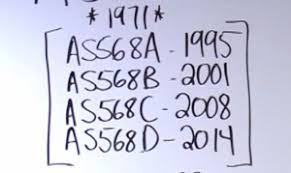 *1971*
AS568A - 1995
AS568B - 2001
AS568C - 2008
AS568D - 2014